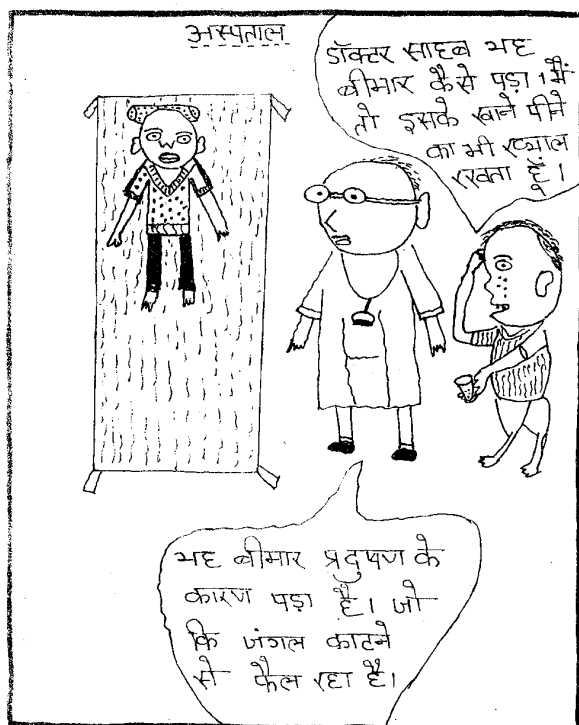 अस्पताल
डॉक्टर साहब यह
बीमार कैसे पड़ा। मैं
तो इसके खाने पीने
का भी ख्याल
रखता हूँ।
यह बीमार प्रदुषण के
कारण पड़ा है। जो
कि जंगल काटने
से फैल रहा है।